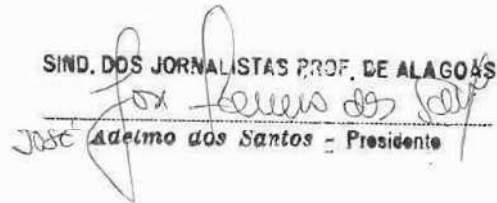 SIND. DOS JORNALISTAS PROF. DE ALAGOAS
dos
JOSÉ Adelmo dos Santos - Presidente